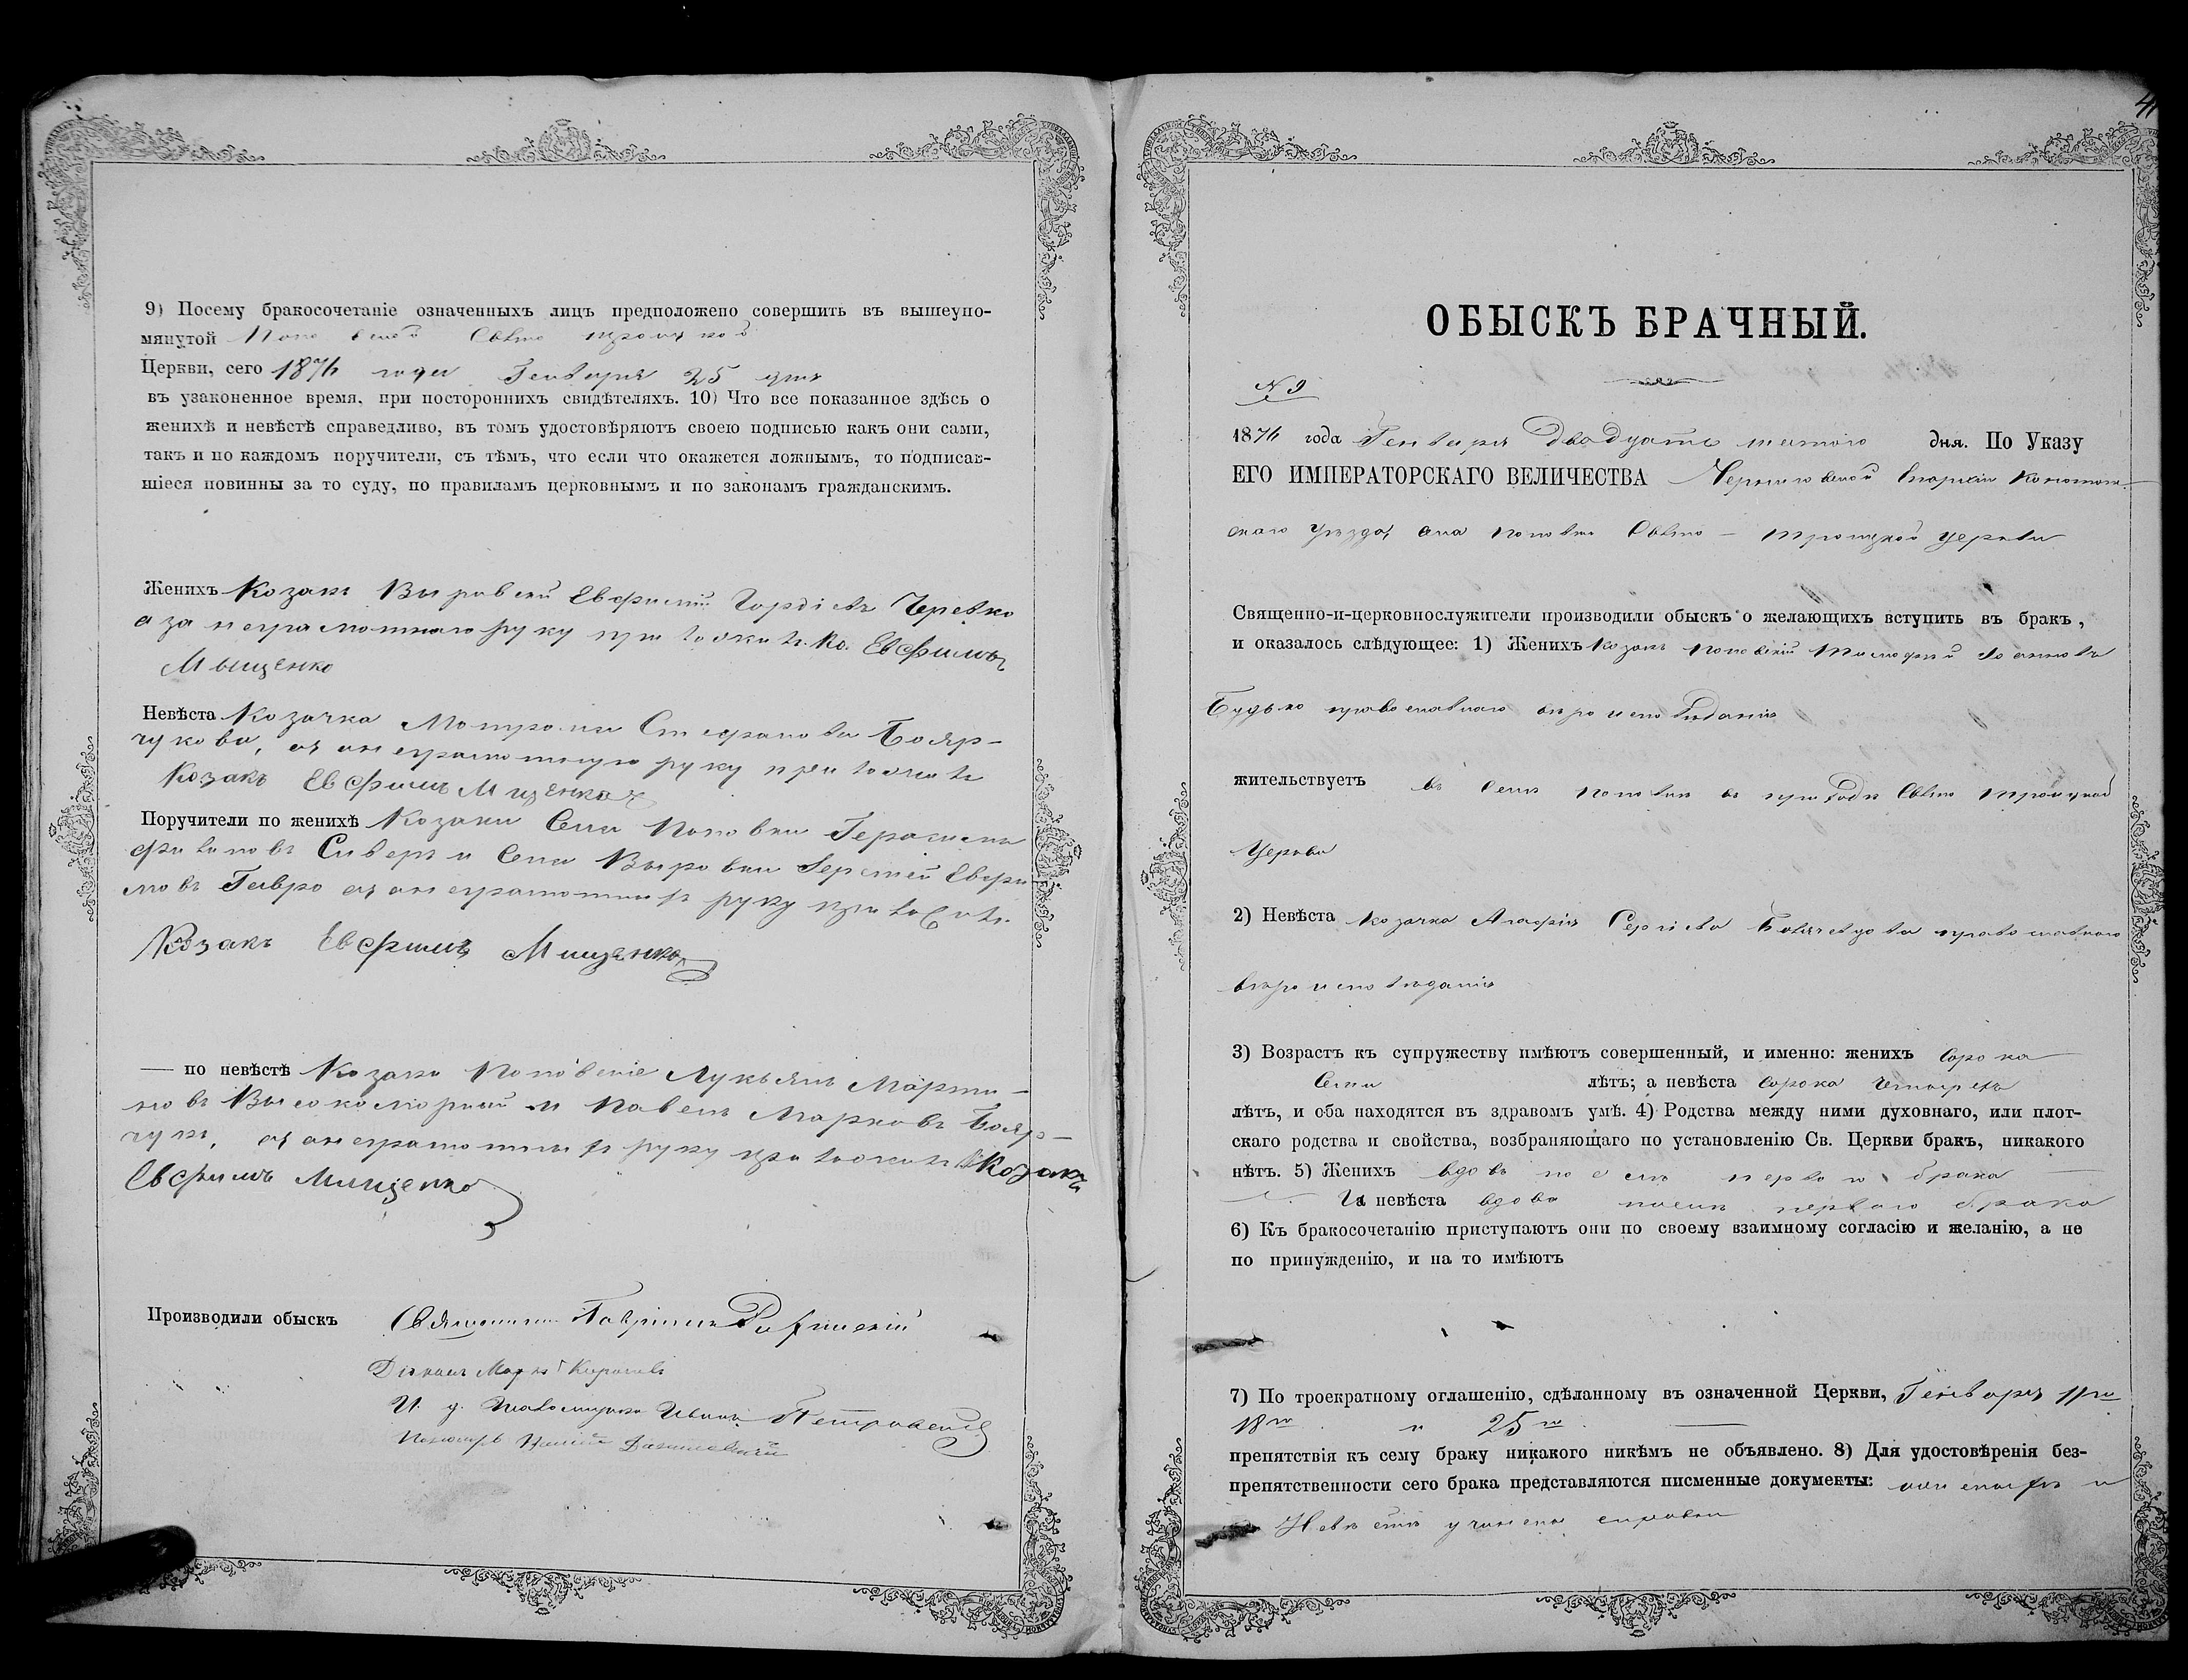 9) Посему бракосочетаніе означенныхъ лицъ предположено совершить въ вышеупо-
мянутой Поповской Свято Троицкой
Церкви, сего 1876 года Генваря 25 дня
въ узаконенное время, при постороннихъ свидѣтеляхъ. 10) Что все показанное здѣсь о
женихѣ и невѣстѣ справедливо, въ томъ удостовѣряютъ своею подписью какъ они сами,
такъ и по каждомъ поручители, съ тѣмъ, что если что окажется ложнымъ, то подписав-
шіеся повинны за то суду, по правиламъ церковнымъ и по законамъ гражданскимъ.
Женихъ Козакъ Выровский Евфимий Гордіевъ Черевко
а за неграмотного руку приложилъ Ко. Евфимъ
Мыщенко
Невѣста Козачка Мотрона Стефанова Бояр-
чукова, а за неграмотную руку приложилъ
Козакъ Евфимъ Мищенко
Поручители по женихѣ Козаки Села Поповки Герасимъ
Сиверъ и Села Выровки Евфи-
мовъ Гавро а за неграмотныхъ руку приложилъ
Козакъ Евфимъ Мищенко
— по невѣстѣ Козаки Поповские Лукьянъ Марти-
новъ Высокоморный и Павелъ Марковъ Бояр-
чукъ, а за неграмотныхъ руку приложилъ Козакъ
Евфимъ Мищенко
Производили обыскъ Священникъ Гавріилъ
Діаконъ
И. д. Псаломщика Иванъ Петровский
Пономарь
ОБЫСКЪ БРАЧНЫЙ.
№ 9
1876 года Генваря Двадцать шестого дня. По Указу
ЕГО ИМПЕРАТОРСКАГО ВЕЛИЧЕСТВА Черниговской Епархіи Конотоп-
скаго Уѣзда, села Поповки Свято-Троицкой Церкви
Священно-и-церковнослужители производили обыскъ о желающихъ вступить въ бракъ,
и оказалось слѣдующее: 1) Женихъ Козакъ Поповскій Тимофей Іоанновъ
Будько православнаго вѣроисповѣданія
жительствуетъ въ Селѣ Поповки въ приходѣ Свято Троицкой
Церкви
2) Невѣста Козачка Агафія Сергіева православнаго
вѣроисповѣданія
3) Возрастъ къ супружеству имѣютъ совершенный, и именно: женихъ Сорока
Семи лѣтъ; а невѣста Сорока Четырехъ
лѣтъ, и оба находятся въ здравомъ умѣ. 4) Родства между ними духовнаго, или плот-
скаго родства и свойства, возбраняющаго по установленію Св. Церкви бракъ, никакого
нѣтъ. 5) Женихъ вдовъ послѣ перваго брака
а невѣста вдова послѣ перваго брака
6) Къ бракосочетанію приступаютъ они по своему взаимному согласію и желанію, а не
по принужденію, и на то имѣютъ
7) По троекратному оглашенію, сдѣланному въ означенной Церкви, Генваря 11го
18го и 25го
препятствія къ сему браку никакого никѣмъ не объявлено. 8) Для удостовѣренія без-
препятственности сего брака представляются писменные документы: о женихѣ и
Невѣстѣ учинена справка